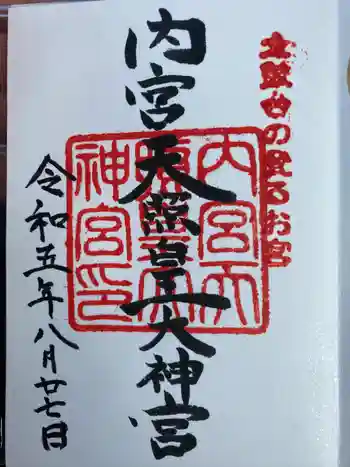 るお宮
内宮天照皇大神宮
内宮天
照皇大
神宮印
令和五年八月廿七日